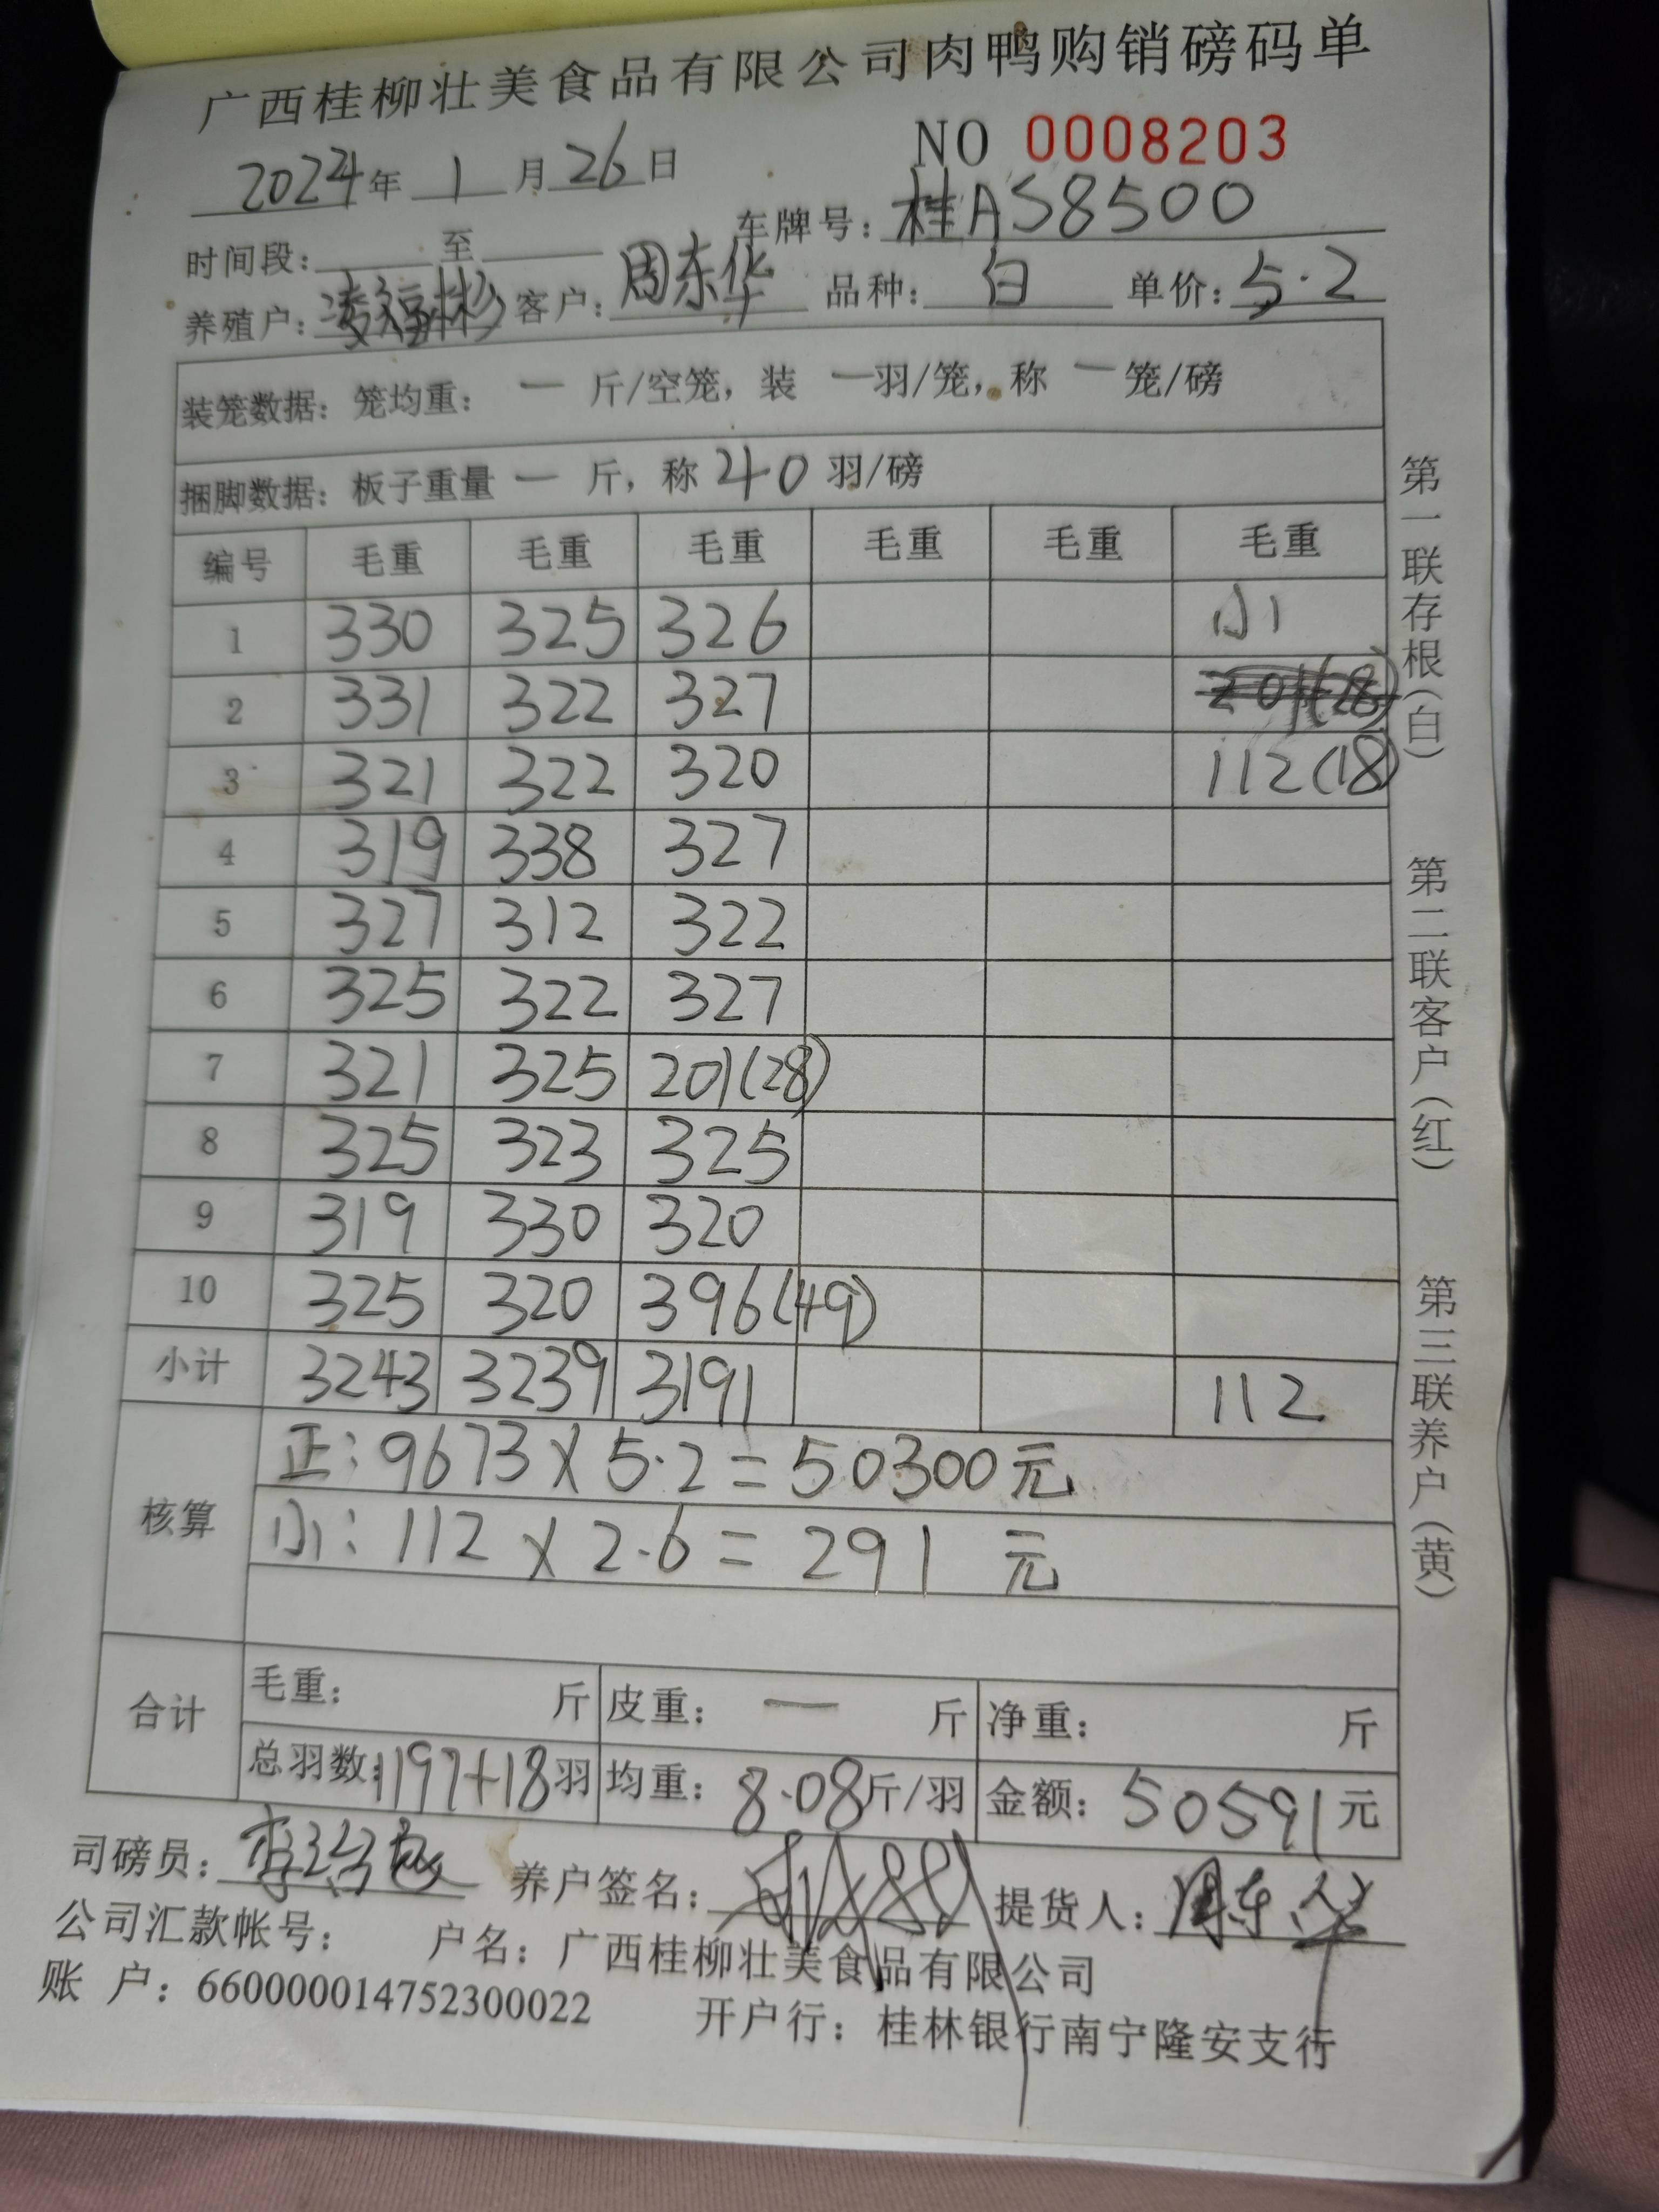 广西桂柳壮美食品有限公司肉鸭购销磅码单
NO 0008203
2024年 1 月 26 日
车牌号：桂AS8500
时间段： 至
养殖户：凌福彬 客户：周东华 品种：白 单价：5.2
装笼数据：笼均重： 一 斤/空笼，装 一羽/笼，称 一 笼/磅
捆脚数据：板子重量 一 斤，称 40 羽/磅
编号 毛重 毛重 毛重 毛重 毛重 毛重
1 330 325 326 小
2 331 322 327 201(28)
3 321 322 320 112(18)
4 319 338 327
5 327 312 322
6 325 322 327
7 321 325 201(28)
8 325 323 325
9 319 330 320
10 325 320 396(49)
小计 3243 3239 3191 112
核算
正：9673×5.2=50300元
小：112×2.6=291 元
合计
毛重： 斤 皮重： — 斤 净重： 斤
总羽数：1197+18羽 均重：8.08斤/羽 金额：50591元
司磅员： 养户签名： 提货人：周东华
公司汇款帐号： 户名：广西桂柳壮美食品有限公司
账 户：660000014752300022 开户行：桂林银行南宁隆安支行
第一联存根（白）
第二联客户（红）
第三联养户（黄）